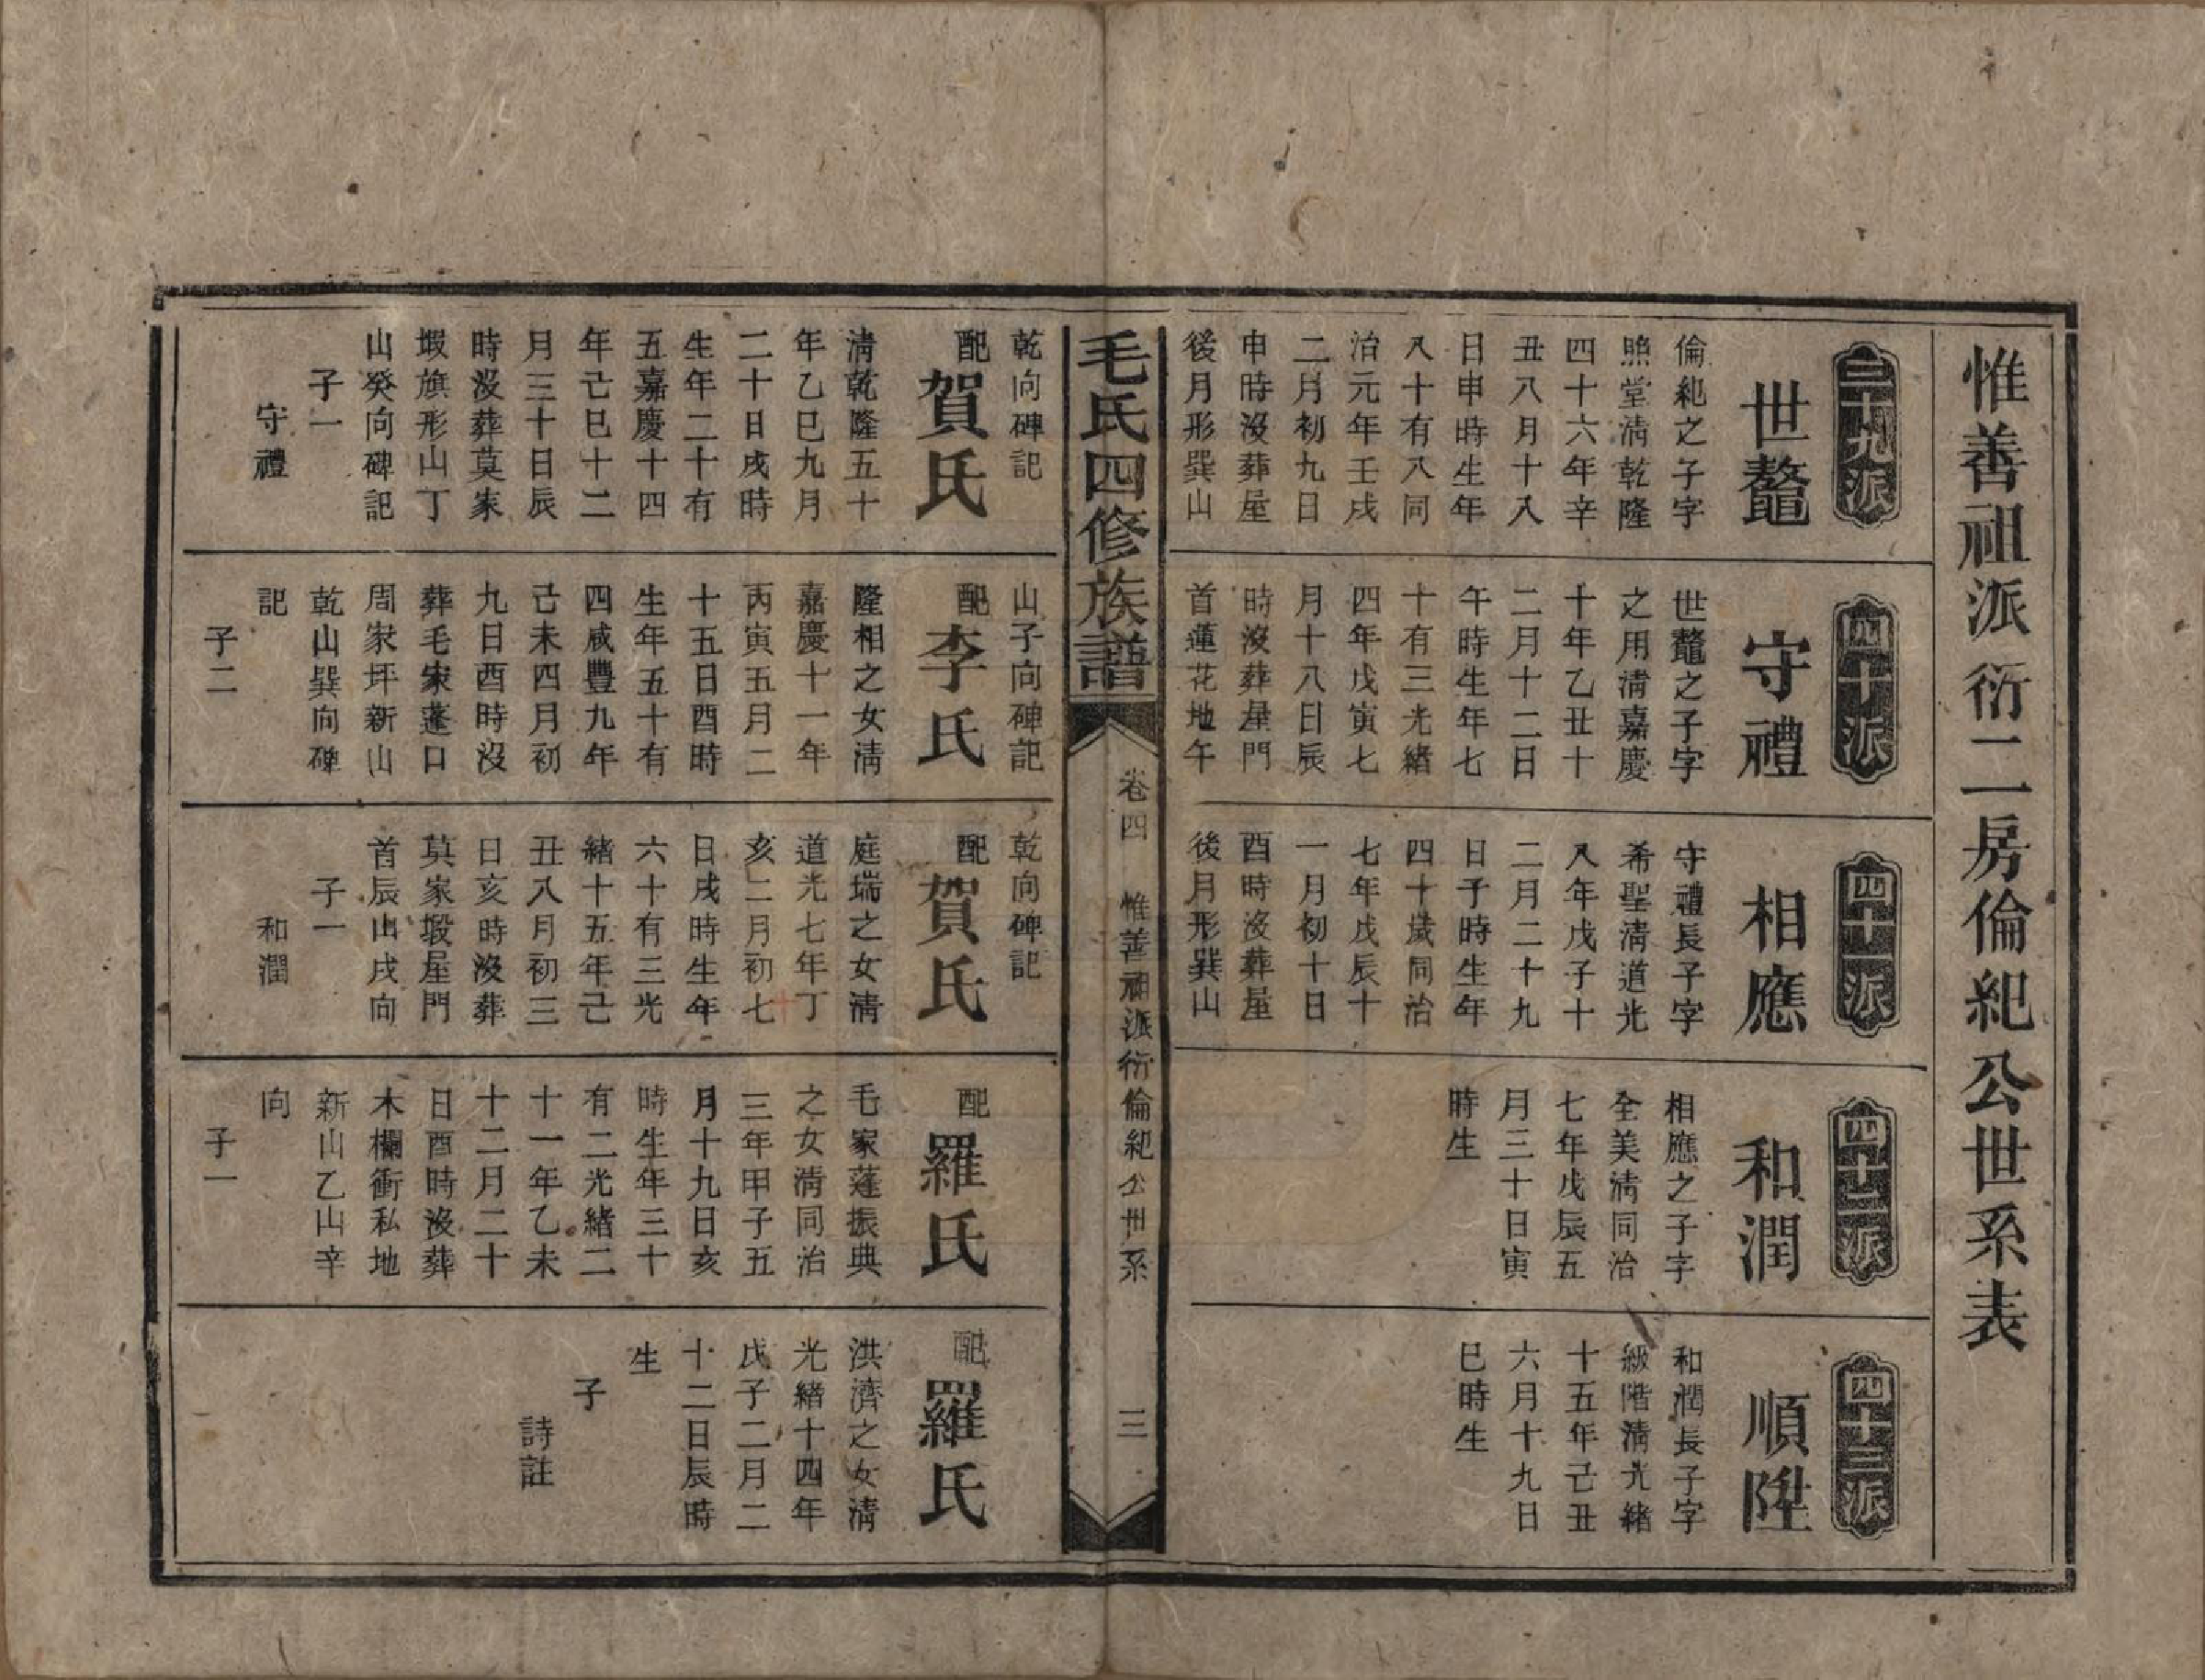 惟善祖派衍二房倫紀公世系表
三十九派
世鼇
倫紀之子字
照堂清乾隆
四十六年辛
丑八月十八
日申時生年
八十有八同
治元年壬戌
二月初九日
申時沒葬屋
後月形巽山
四十派
守禮
世鼇之子字
之用清嘉慶
十年乙丑十
二月十二日
午時生年七
十有三光緒
四年戊寅七
月十八日辰
時沒葬屋門
首蓮花地午
四十一派
相應
守禮長子字
希聖清道光
八年戊子十
二月二十九
日子時生年
四十歲同治
七年戊辰十
一月初十日
酉時沒葬屋
後月形巽山
四十二派
和潤
相應之子字
全美清同治
七年戊辰五
月三十日寅
時生
四十三派
順陞
和潤長子字
級階清光緒
十五年己丑
六月十九日
巳時生
毛氏四修族譜
卷四 惟善祖派衍倫紀公世系 三
乾向碑記
配賀氏
清乾隆五十
年乙巳九月
二十日戌時
生年二十有
五嘉慶十四
年己巳十二
月三十日辰
時沒葬莫家
塅旗形山丁
山癸向碑記
子一
守禮
山子向碑記
配李氏
隆相之女清
嘉慶十一年
丙寅五月二
十五日酉時
生年五十有
四咸豐九年
己未四月初
九日酉時沒
葬毛家蓬口
周家坪新山
乾山巽向碑
記
子二
乾向碑記
配賀氏
庭瑞之女清
道光七年丁
亥二月初七
日戌時生年
六十有三光
緒十五年己
丑八月初三
日亥時沒葬
莫家塅屋門
首辰山戌向
子一
和潤
配羅氏
毛家蓬振典
之女清同治
三年甲子五
月十九日亥
時生年三十
有二光緒二
十一年乙未
十二月二十
日酉時沒葬
木欄衝私地
新山乙山辛
向
子一
配羅氏
洪濟之女清
光緒十四年
戊子二月二
十二日辰時
生
子
詩註